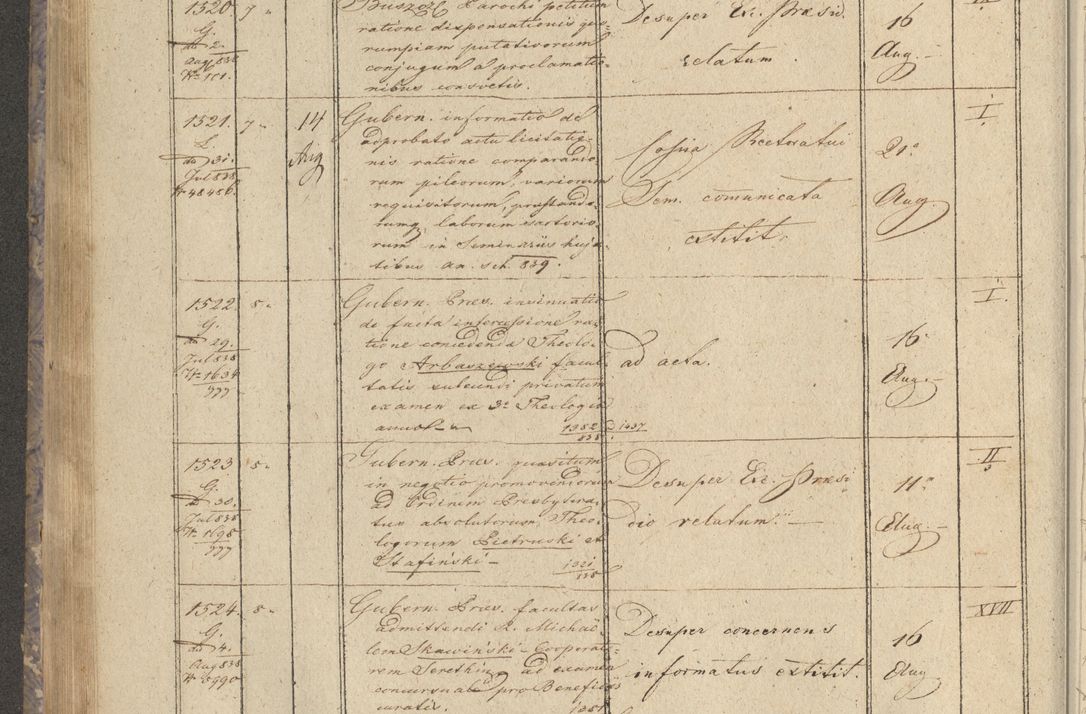 1520 7 "
G.
dto 2.
Aug 838
N: 101.
Buszcze Parochi petitum
ratione dispensationis quo-
rumpiam putativorum
conjugum a proclamatio-
nibus consvetis.
Desuper Exc. Præsid.
relatum.
16
Aug.
1521. 7 "
L.
dto 31.
Jul 838
N: 48486.
14
Aug
Gubern. informatio de
adprobato actu licitatio-
nis ratione comparando-
rum pileorum, variorum
requisitorum, præstando-
rumq. laborum sartorio-
rum in Seminariis huja-
tibus an. sch. 839.
Copia Rectoratui
Sem. comunicata
extitit.
21.
Aug.
I.
1522 8 "
G.
dto 29.
Jul 838
N: 1634
777
Gubern. Præs. insinuatio
de facta intercessione ra-
tione concedenda Theolo-
go Arbaszewski facul-
tatis subeundi privatum
examen ex 3. Theologia
1352 1437
838
ad acta.
16
Aug.
I.
1523 8 "
G.
dto 30.
Jul 838
N: 1695
777
Gubern. Præs. quæsitum
in negotio promovendorum
ad Ordinem Presbytera-
tus absolutorum Theo-
logorum Pietruski et
Stafiński
1321
838
Desuper Exc. Præsi
dio relatum.
11
Aug.
II.
1524. 8 "
G.
dto 4.
Aug 838
Gubern. Præs. facultas
admittendi R. Michaë-
lem Skawiński Coopera-
rem Serethin. ad examen
concursuale pro Beneficiis
curatis. 1351
Desuper concernens
informatus extitit.
16
Aug.
XVII